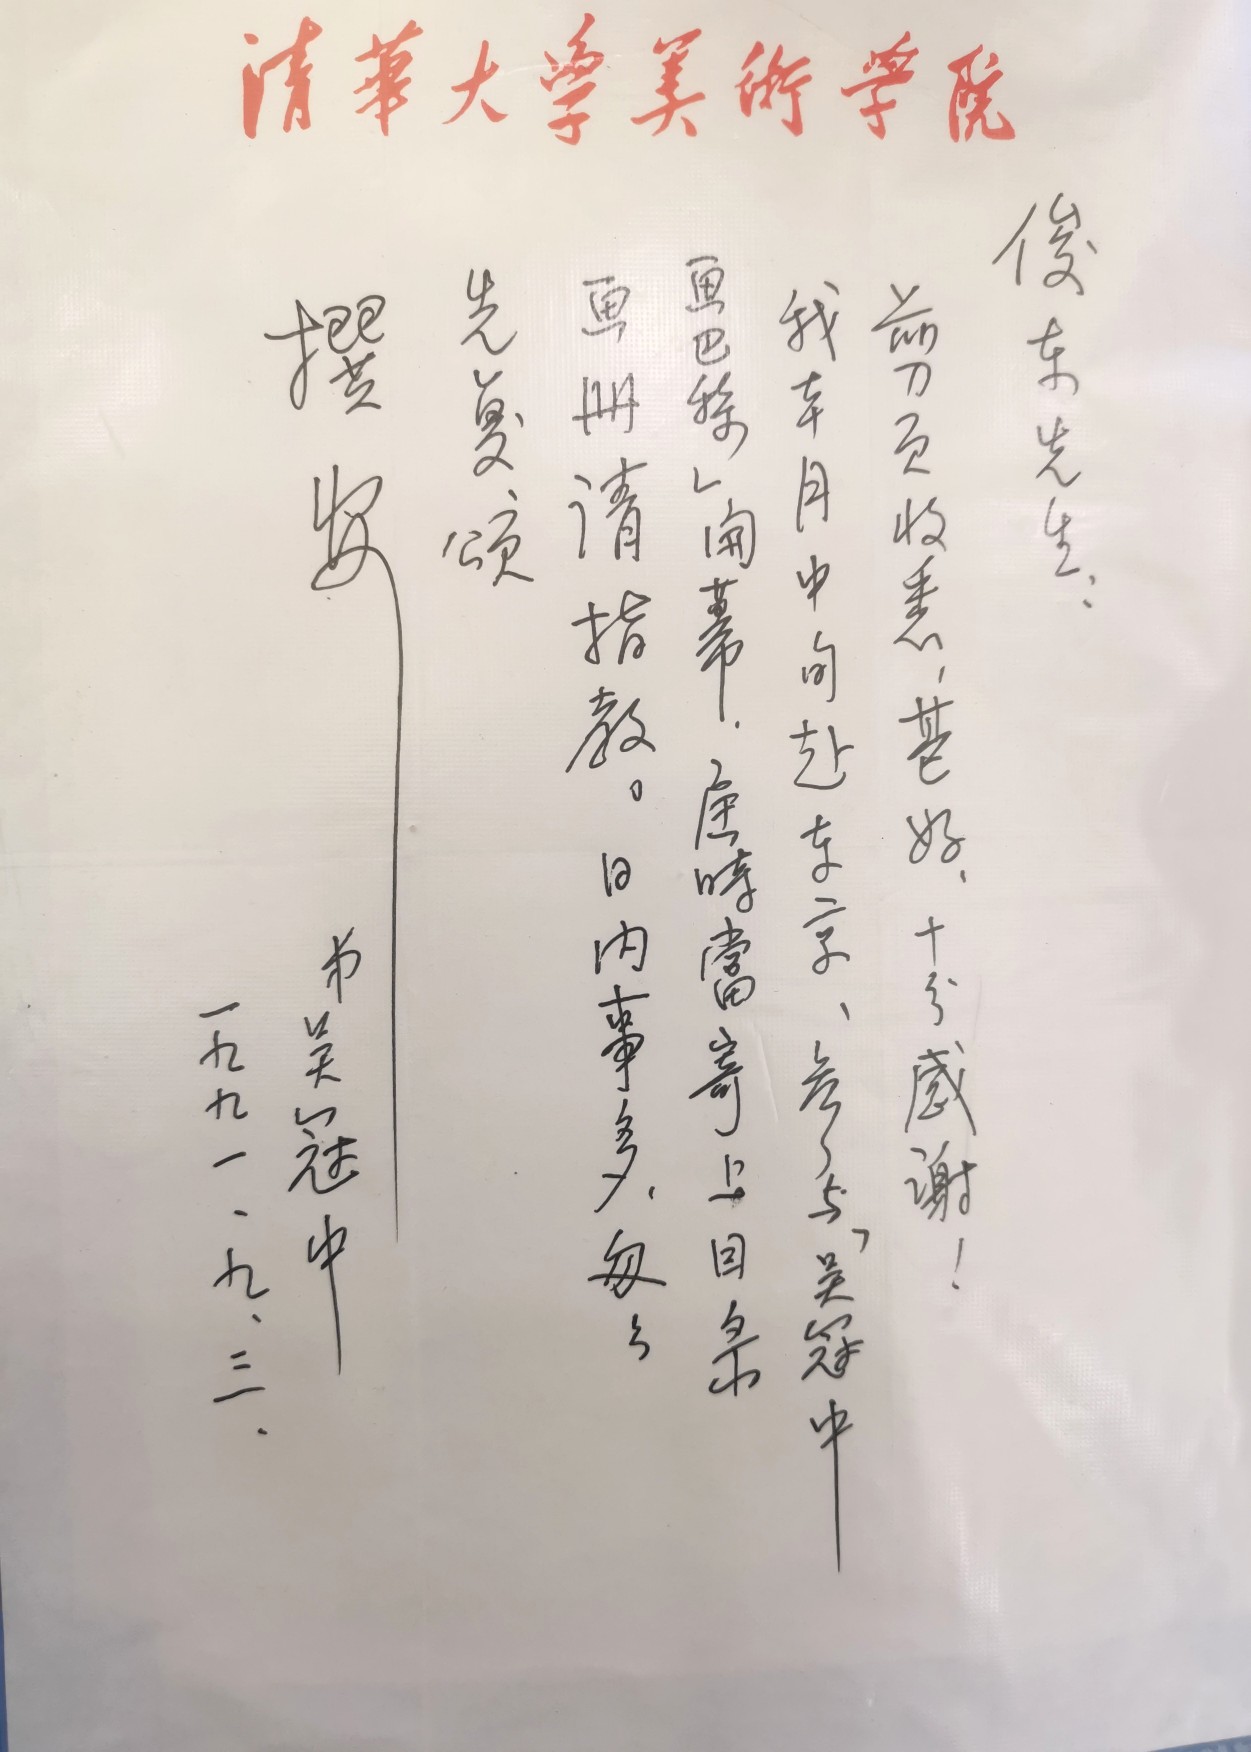 清華大学美術学院
俊东先生：
剪页收悉，甚好，十分感谢！
我本月中旬赴东京、参与「吴冠中
画巴黎」開幕．届時當寄上目录
画册请指教。日内事多，匆匆
先复 颂
撰安
弟吴冠中
一九九一、九、三．